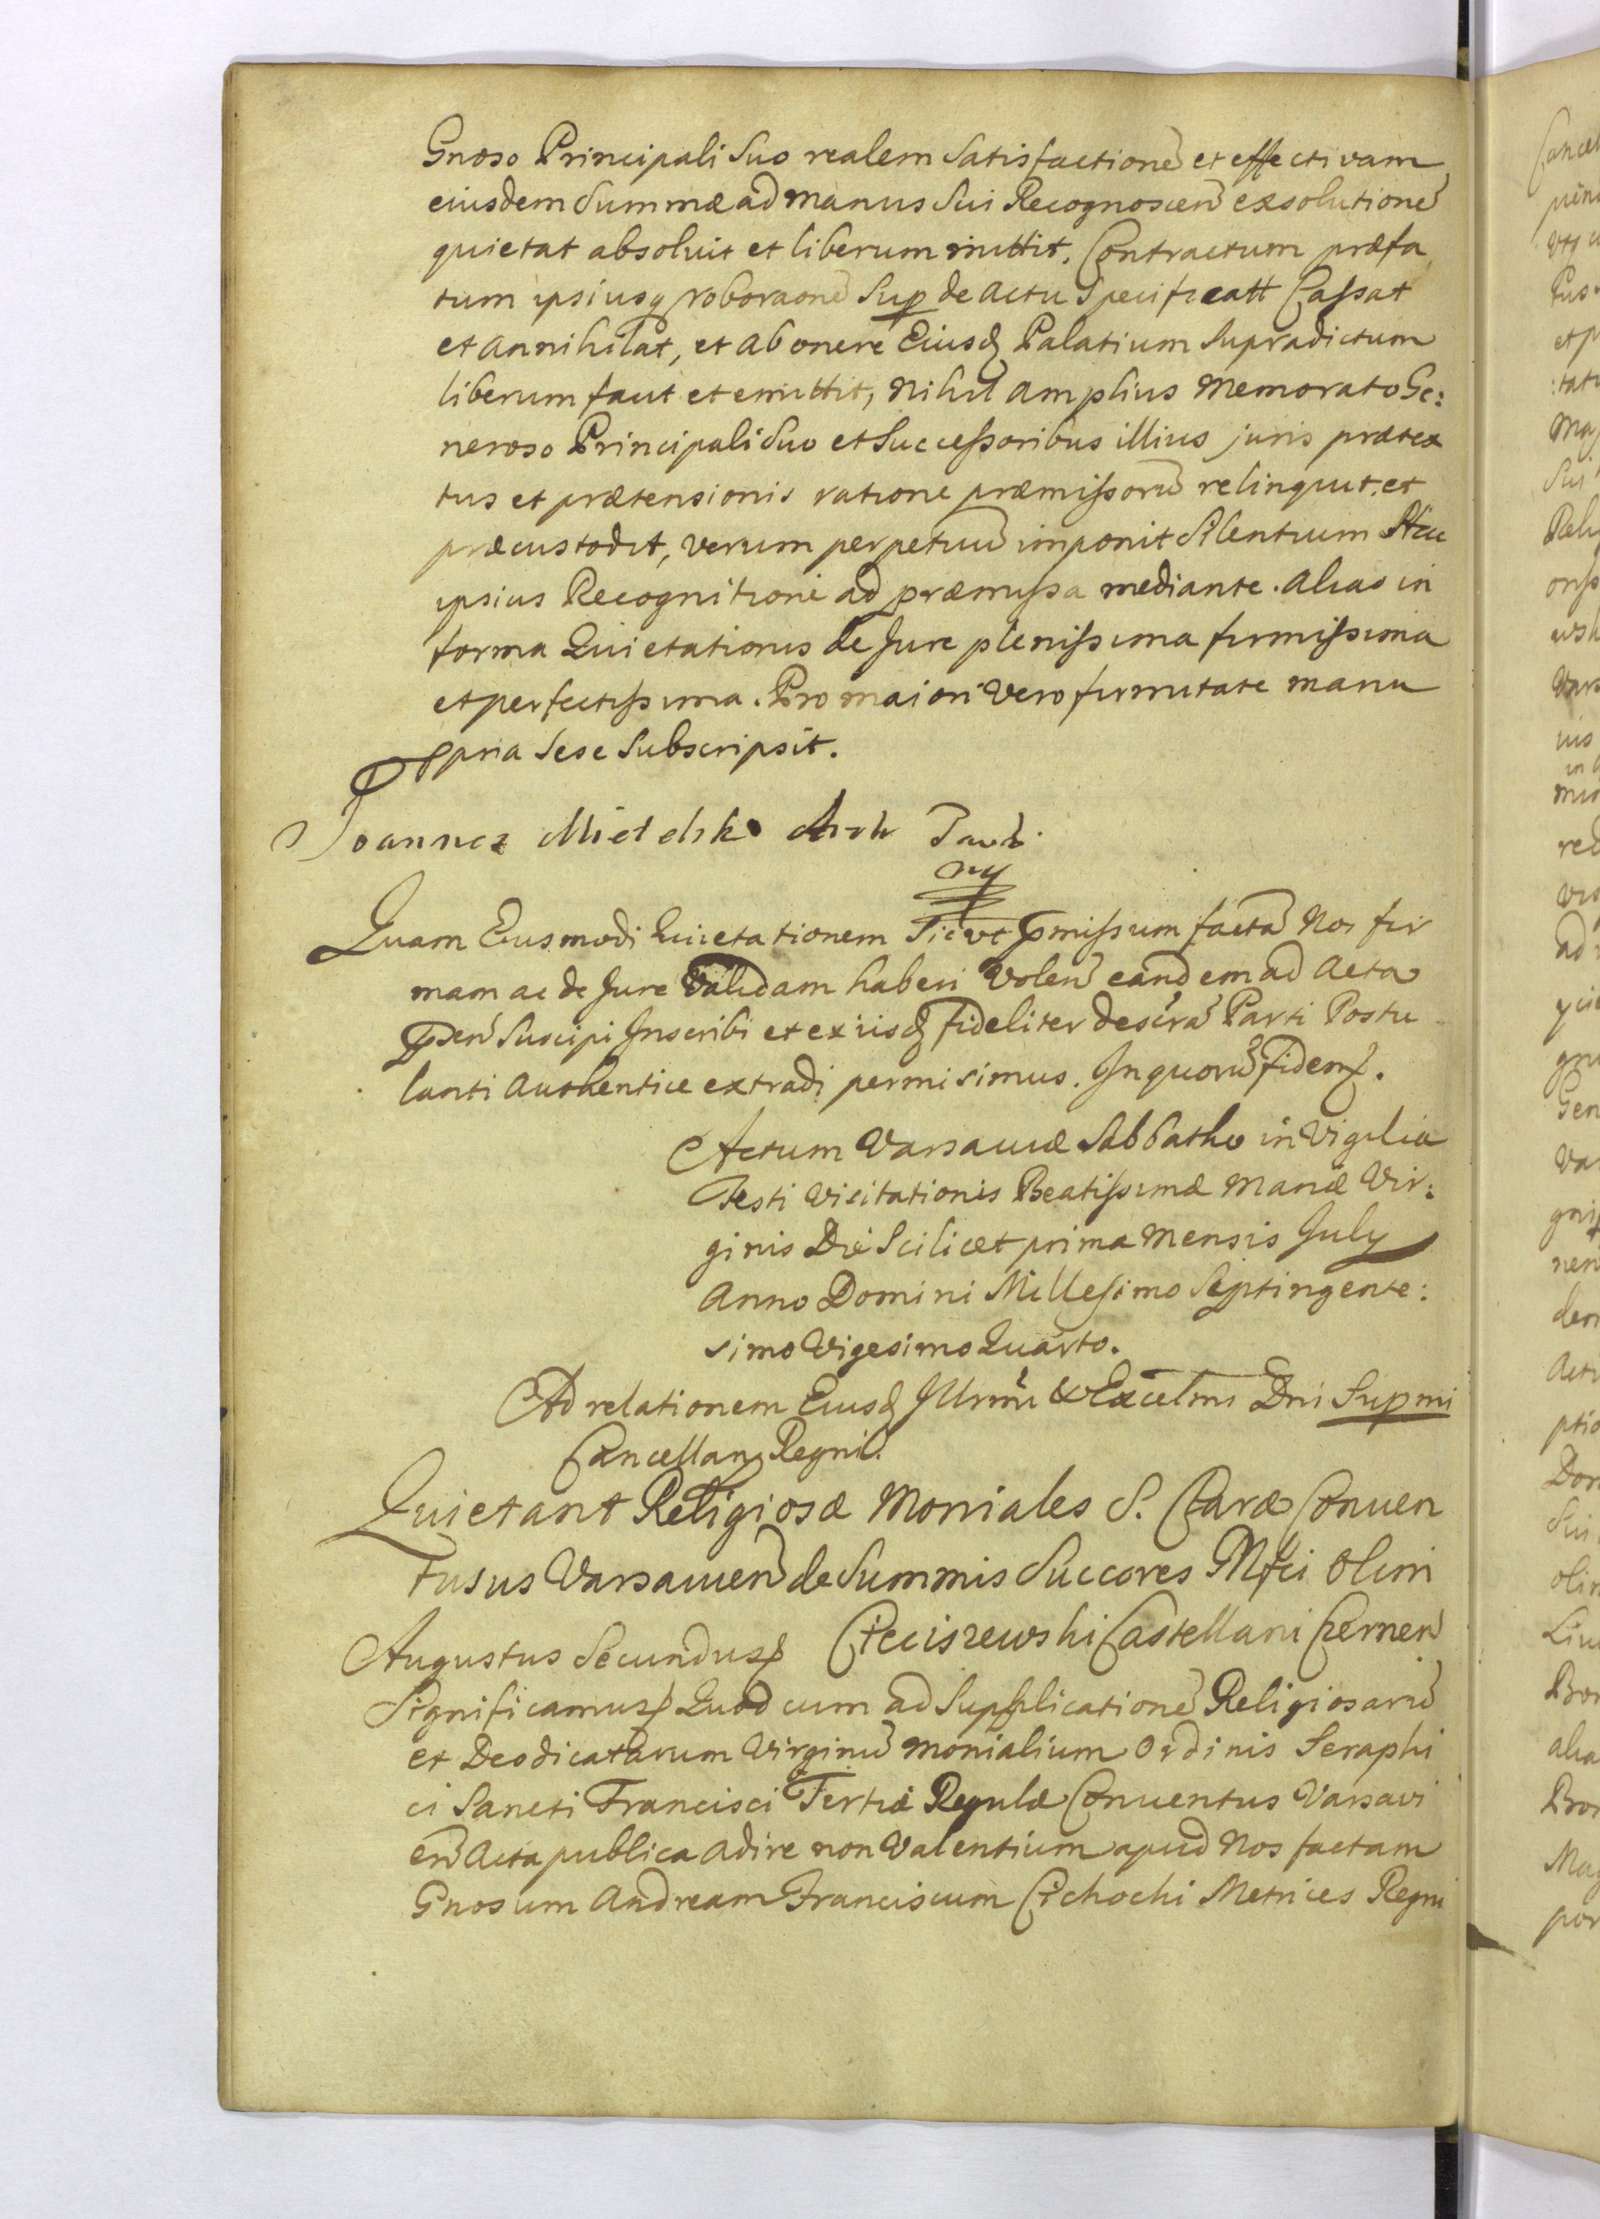 Gnoso Principali Suo realem Satisfactionē et effectivam
eiusdem Summæ ad manus Sui Recognoscen̄ exsolutionē
quietat absoluit et liberum mittit. Contractum præfa
tum ipsiusq roboraonē Sup de actu Specificatt Cassat
et Annihilat, et ab onere Eiusd Palatium Supradictum
liberum facit et emittit, nihil amplius memorato Ge:
neroso Principali Suo et Successoribus illius juris prætex
tus et prætensionis ratione præmissorū relinquit et
præcustodit, verum perpetuū imponit Silentium Hac
ipsius Recognitione ad præmissa mediante. alias in
forma Quietationis de Jure plenissima firmissima
et perfectissima. Pro maiori vero firmitate manu
ppria Sese Subscripsit.
Joannes
Quam Eiusmodi Quietationem Sicut pmissum factā Nos fir
mam ac de Jure Validam haberi Volen̄ eandem ad Acta
psen̄ Suscipi Inscribi et ex iisd fideliter descrā Parti Postu
lanti Authentice extradi permisimus. In quorū fidem.
Actum Varsaviæ Sabbatho in Vigilia
Festi Visitationis Beatissimæ Mariæ Vir:
ginis Die Scilicet prima Mensis July
Anno Domini Millesimo Septingente:
simo Vigesimo Quarto.
Ad relationem Eiusd Illrmi & Excelmi Dni Supmi
Cancellarij Regni.
Quietant Religiosæ Moniales S. Claræ Conuen
tusus Varsavien̄ de Summis Succores Mfci Olim
Cieciszewski Castellani Czernen̄
Augustus Secundus
Significamus Quod cum ad Supplicationē Religiosarū
et Deodicatarum Virginū monialium Ordinis Seraphi
ci Sancti Francisci Tertiæ Regulæ Conventus Varsavi
en̄ Acta publica adire non Valentium apud Nos factam
Gnosum Andream Franciscum Cichocki Metrices Regni